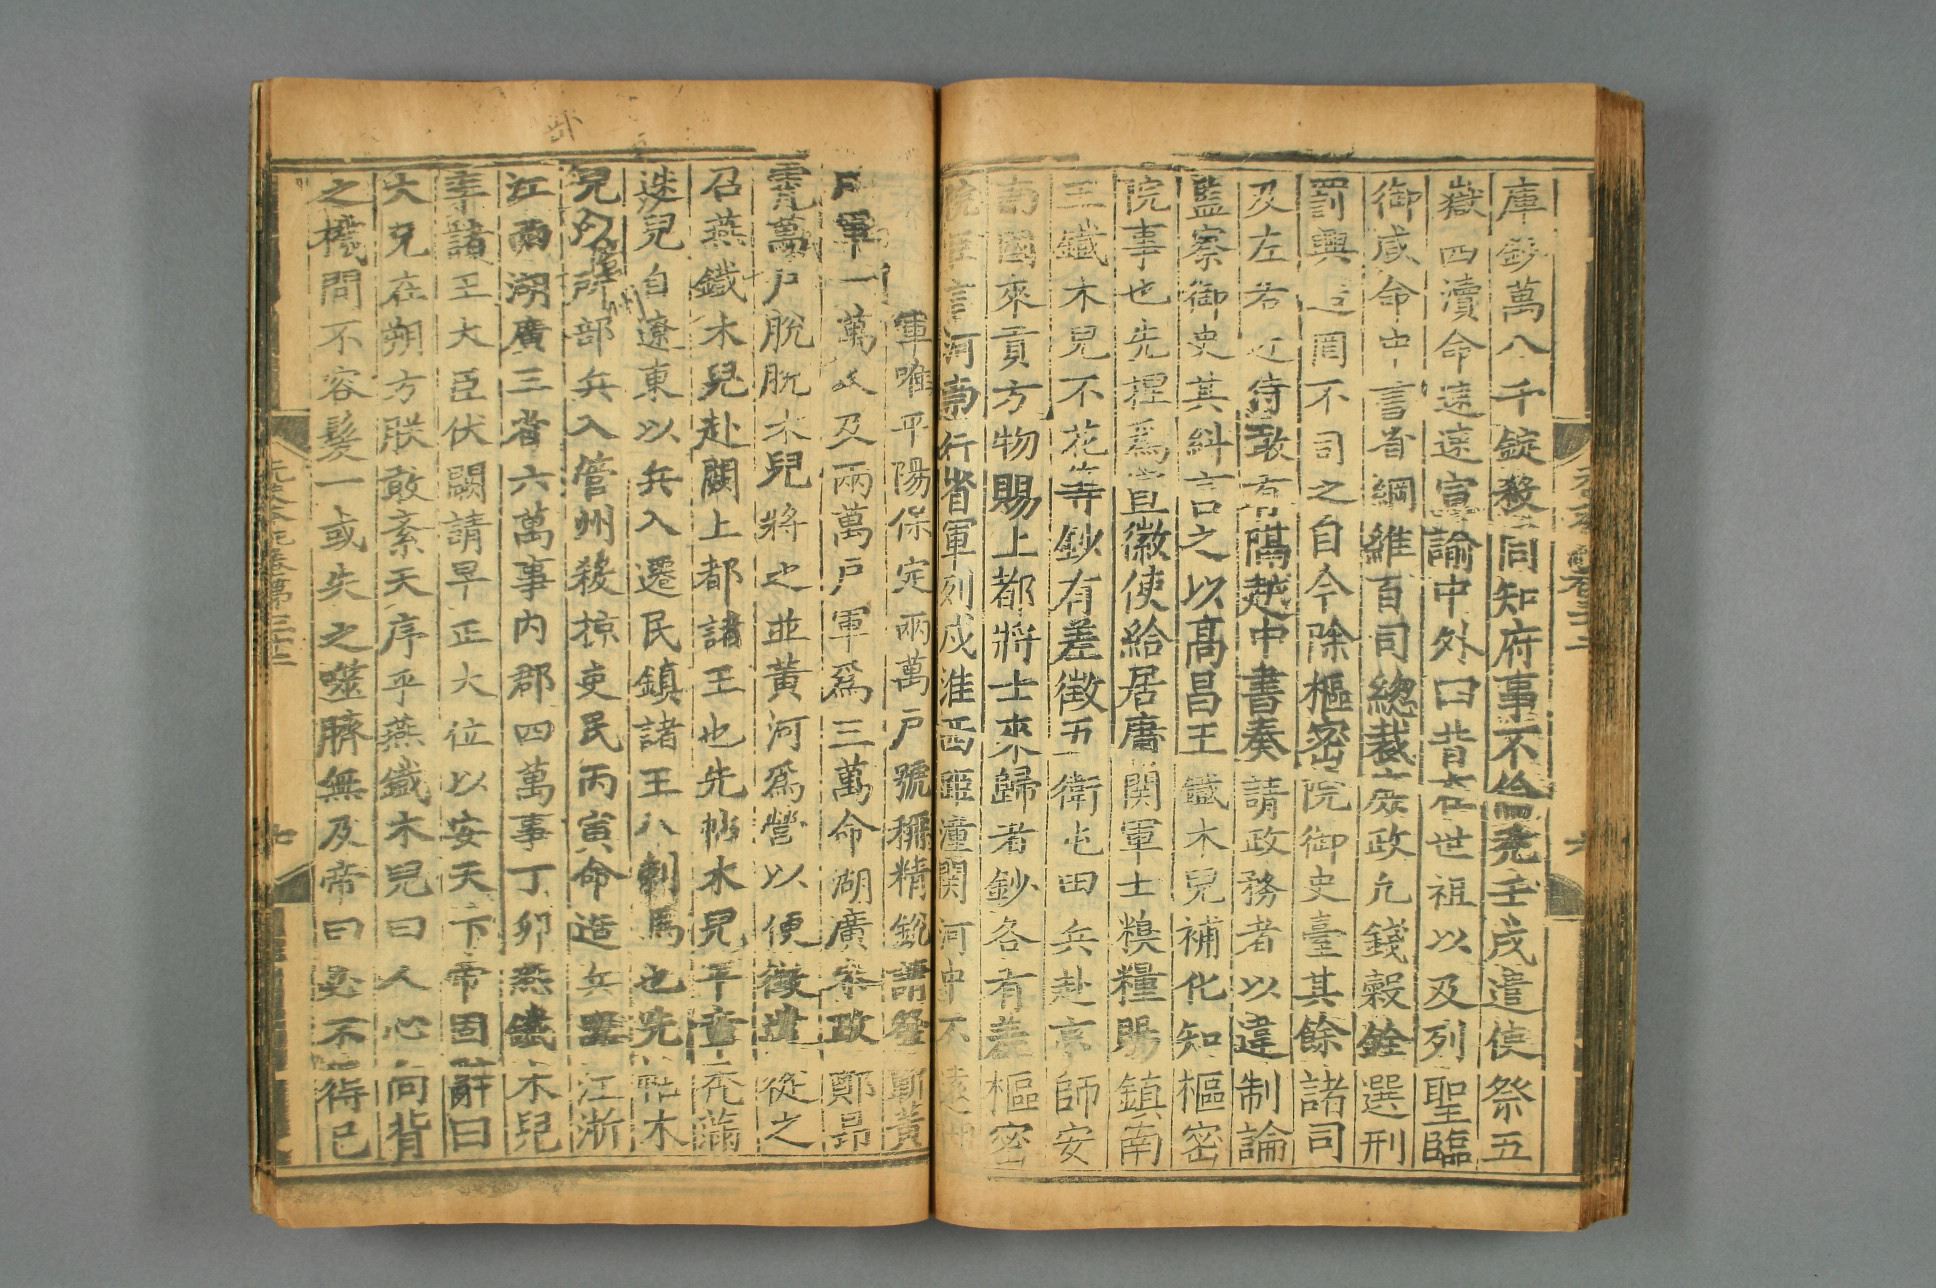 庫鈔萬八千錠殺同知府事不倫禿壬戌遣使祭五
嶽四瀆命遠遠宣諭中外曰昔在世祖以及列聖臨
御咸命中書省綱維百司總裁庶政凡錢穀銓選刑
罰興造罔不司之自今除樞密院御史臺其餘諸司
及左右近侍敢有隔越中書奏請政務者以違制論
監察御史其糾言之以高昌王鐵木兒補化知樞密
院事也先捏爲宣徽使給居庸關軍士糗糧賜鎮南
王鐵木兒不花等鈔有差徵五衛屯田兵赴京師安
南國來貢方物賜上都將士來歸者鈔各有差樞密
院臣言河南行省軍列戍淮西距潼關河中不遠
軍唯平陽保定兩萬戶號稱精銳請發蘄黃
戍軍一萬人及兩萬戶軍爲三萬命湖廣參政鄭昂
霄萬戶脫脫木兒將之並黃河爲營以便徵遣從之
召燕鐵木兒赴闕上都諸王也先帖木兒平章禿滿
迭兒自遼東以兵入遷民鎮諸王八剌馬也先帖木
兒以所部兵入管州殺掠吏民丙寅命造兵器江浙
江西湖廣三省六萬事內郡四萬事丁卯燕鐵木兒
率諸王大臣伏闕請早正大位以安天下帝固辭曰
大兄在朔方朕敢紊天序乎燕鐵木兒曰人心向背
之機間不容髮一或失之噬臍無及帝曰必不得已
元史本紀卷第三十二
七